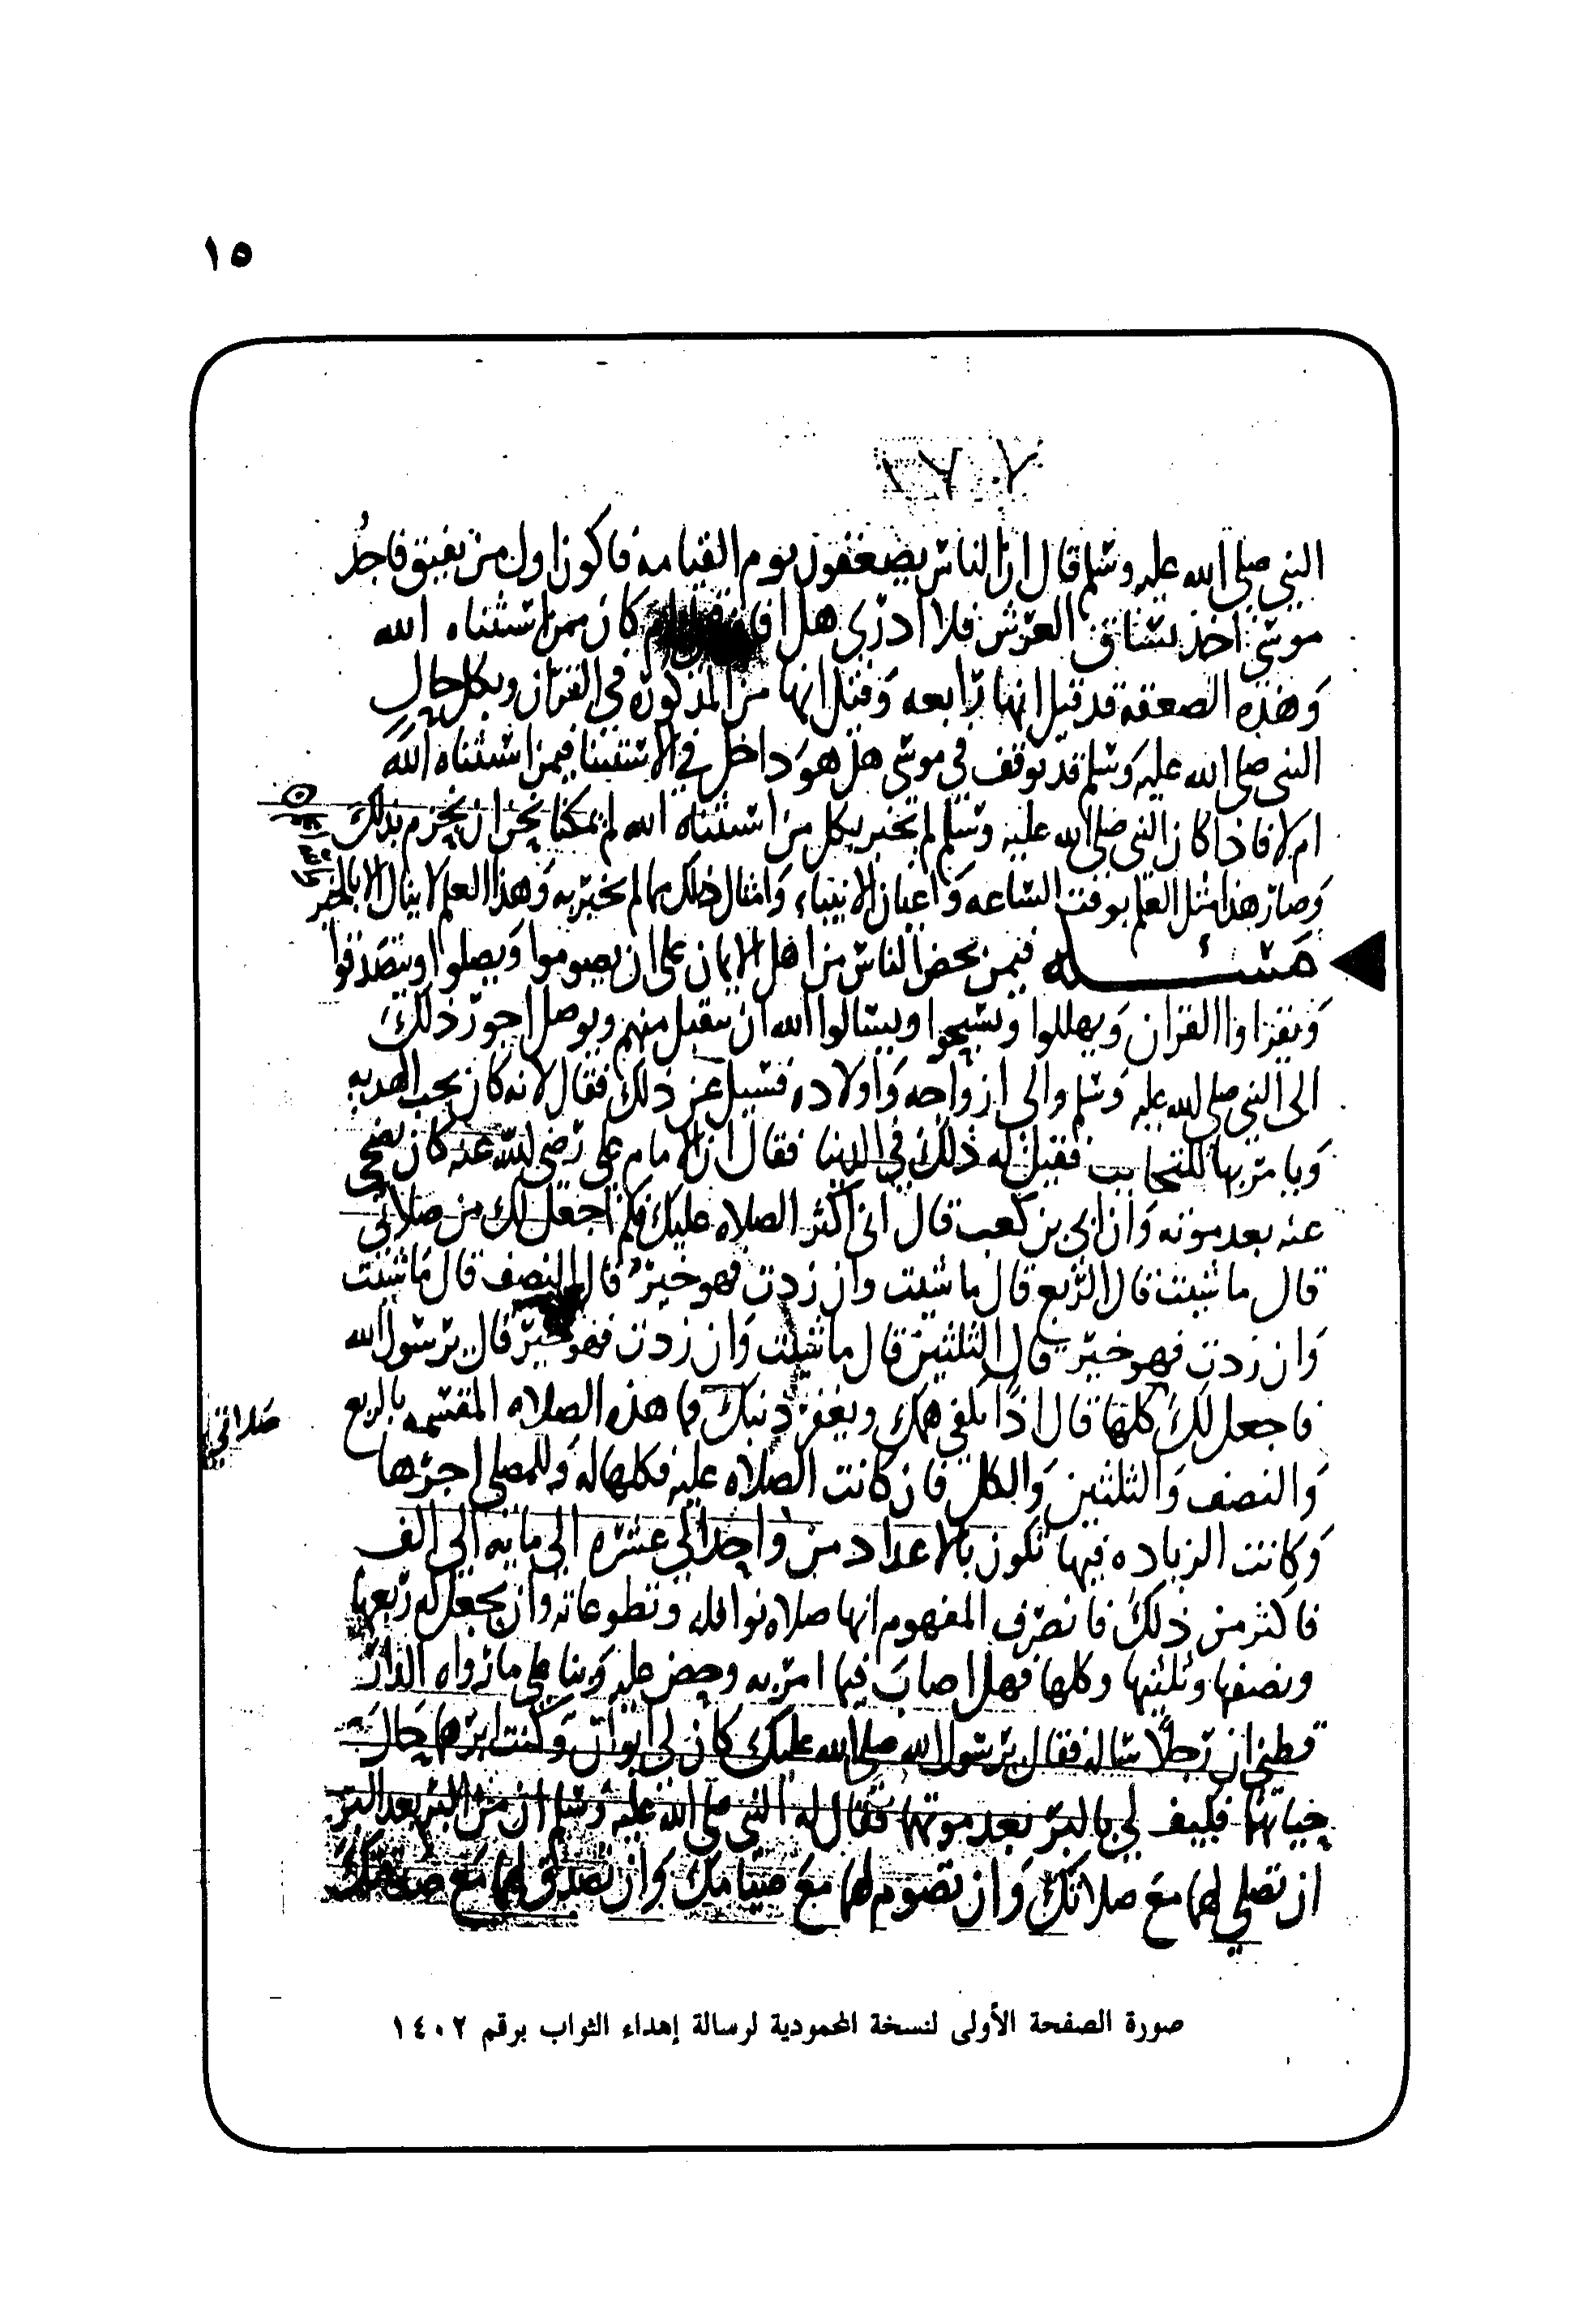 ١٥
النبي صلى الله عليه وسلم قال ان الناس يصعقون يوم القيامه فاكون اول من يفيق فاجد
موسى اخذ بساق العرش فلا ادري هل افاق قبلي ام كان ممن استثناه الله
وهذه الصعقه قد قيل انها رابعه وقيل انها من المذكوره في القران وبكل حال
النبي صلى الله عليه وسلم قد توقف في موسى هل هو داخل في الاستثنا فيمن استثناه الله
ام لا فاذا كان النبي صلى الله عليه وسلم لم يخبر بكل من استثناه الله لم يمكنا نحن ان نجزم بذلك
وصار هذا مثل العلم بوقت الساعه واعيان الانبياء وامثال ذلك مما لم يخبر به وهذا العلم لا ينال الا بالخبر
مسئله فيمن يحض الناس من اهل الايمان على ان يصوموا ويصلوا ويتصدقوا
ويقراوا القران ويهللوا ويسبحوا ويسالوا الله ان يتقبل منهم ويوصل اجور ذلك
الى النبي صلى الله عليه وسلم والى ازواجه واولاده فسيل عن ذلك فقال لانه كان يحب الهديه
ويامر بها للتحابب فقيل له ذلك في الدنيا فقال ان الامام علي رضي الله عنه كان يضحي
عنه بعد موته وان ابي بن كعب قال اني اكثر الصلاه عليك فكم اجعل لك من صلاتي
قال ما شيت قال الربع قال ما شيت وان زدت فهو خير قال النصف قال ما شيت
وان زدت فهو خير قال الثلثين قال ما شيت وان زدت فهو خير قال يرسول الله
فاجعل لك كلها قال اذا تكفي همك ويغفر ذنبك فما هذه الصلاه المقتسمه بالربع
صلاتي
والنصف والثلثين والكل فان كانت الصلاه عليه فكلها له وللمصلي اجرها
وكانت الزياده فيها تكون بالاعداد من واحد الى عشره الى مايه الى الف
فاكثر من ذلك فانصرف المفهوم انها صلاه نوافله وتطوعاته وان يجعل له ربعها
ونصفها وثلثيها وكلها فهل اصاب فيما امر به وحض عليه وبنا على ما رواه الدار
قطني ان رجلا ساله فقال يرسول الله صلى الله عليك كان لي ابوان وكنت ابرهما حال
حياتهما فكيف لي بالبر بعد موتهما فقال له النبي صلى الله عليه وسلم ان من البر بعد البر
ان تصلي لهما مع صلاتك وان تصوم لهما مع صيامك وان تصدق لهما مع صدقتك
صورة الصفحة الأولى لنسخة المحمودية لرسالة إهداء الثواب برقم ١٤٠٢